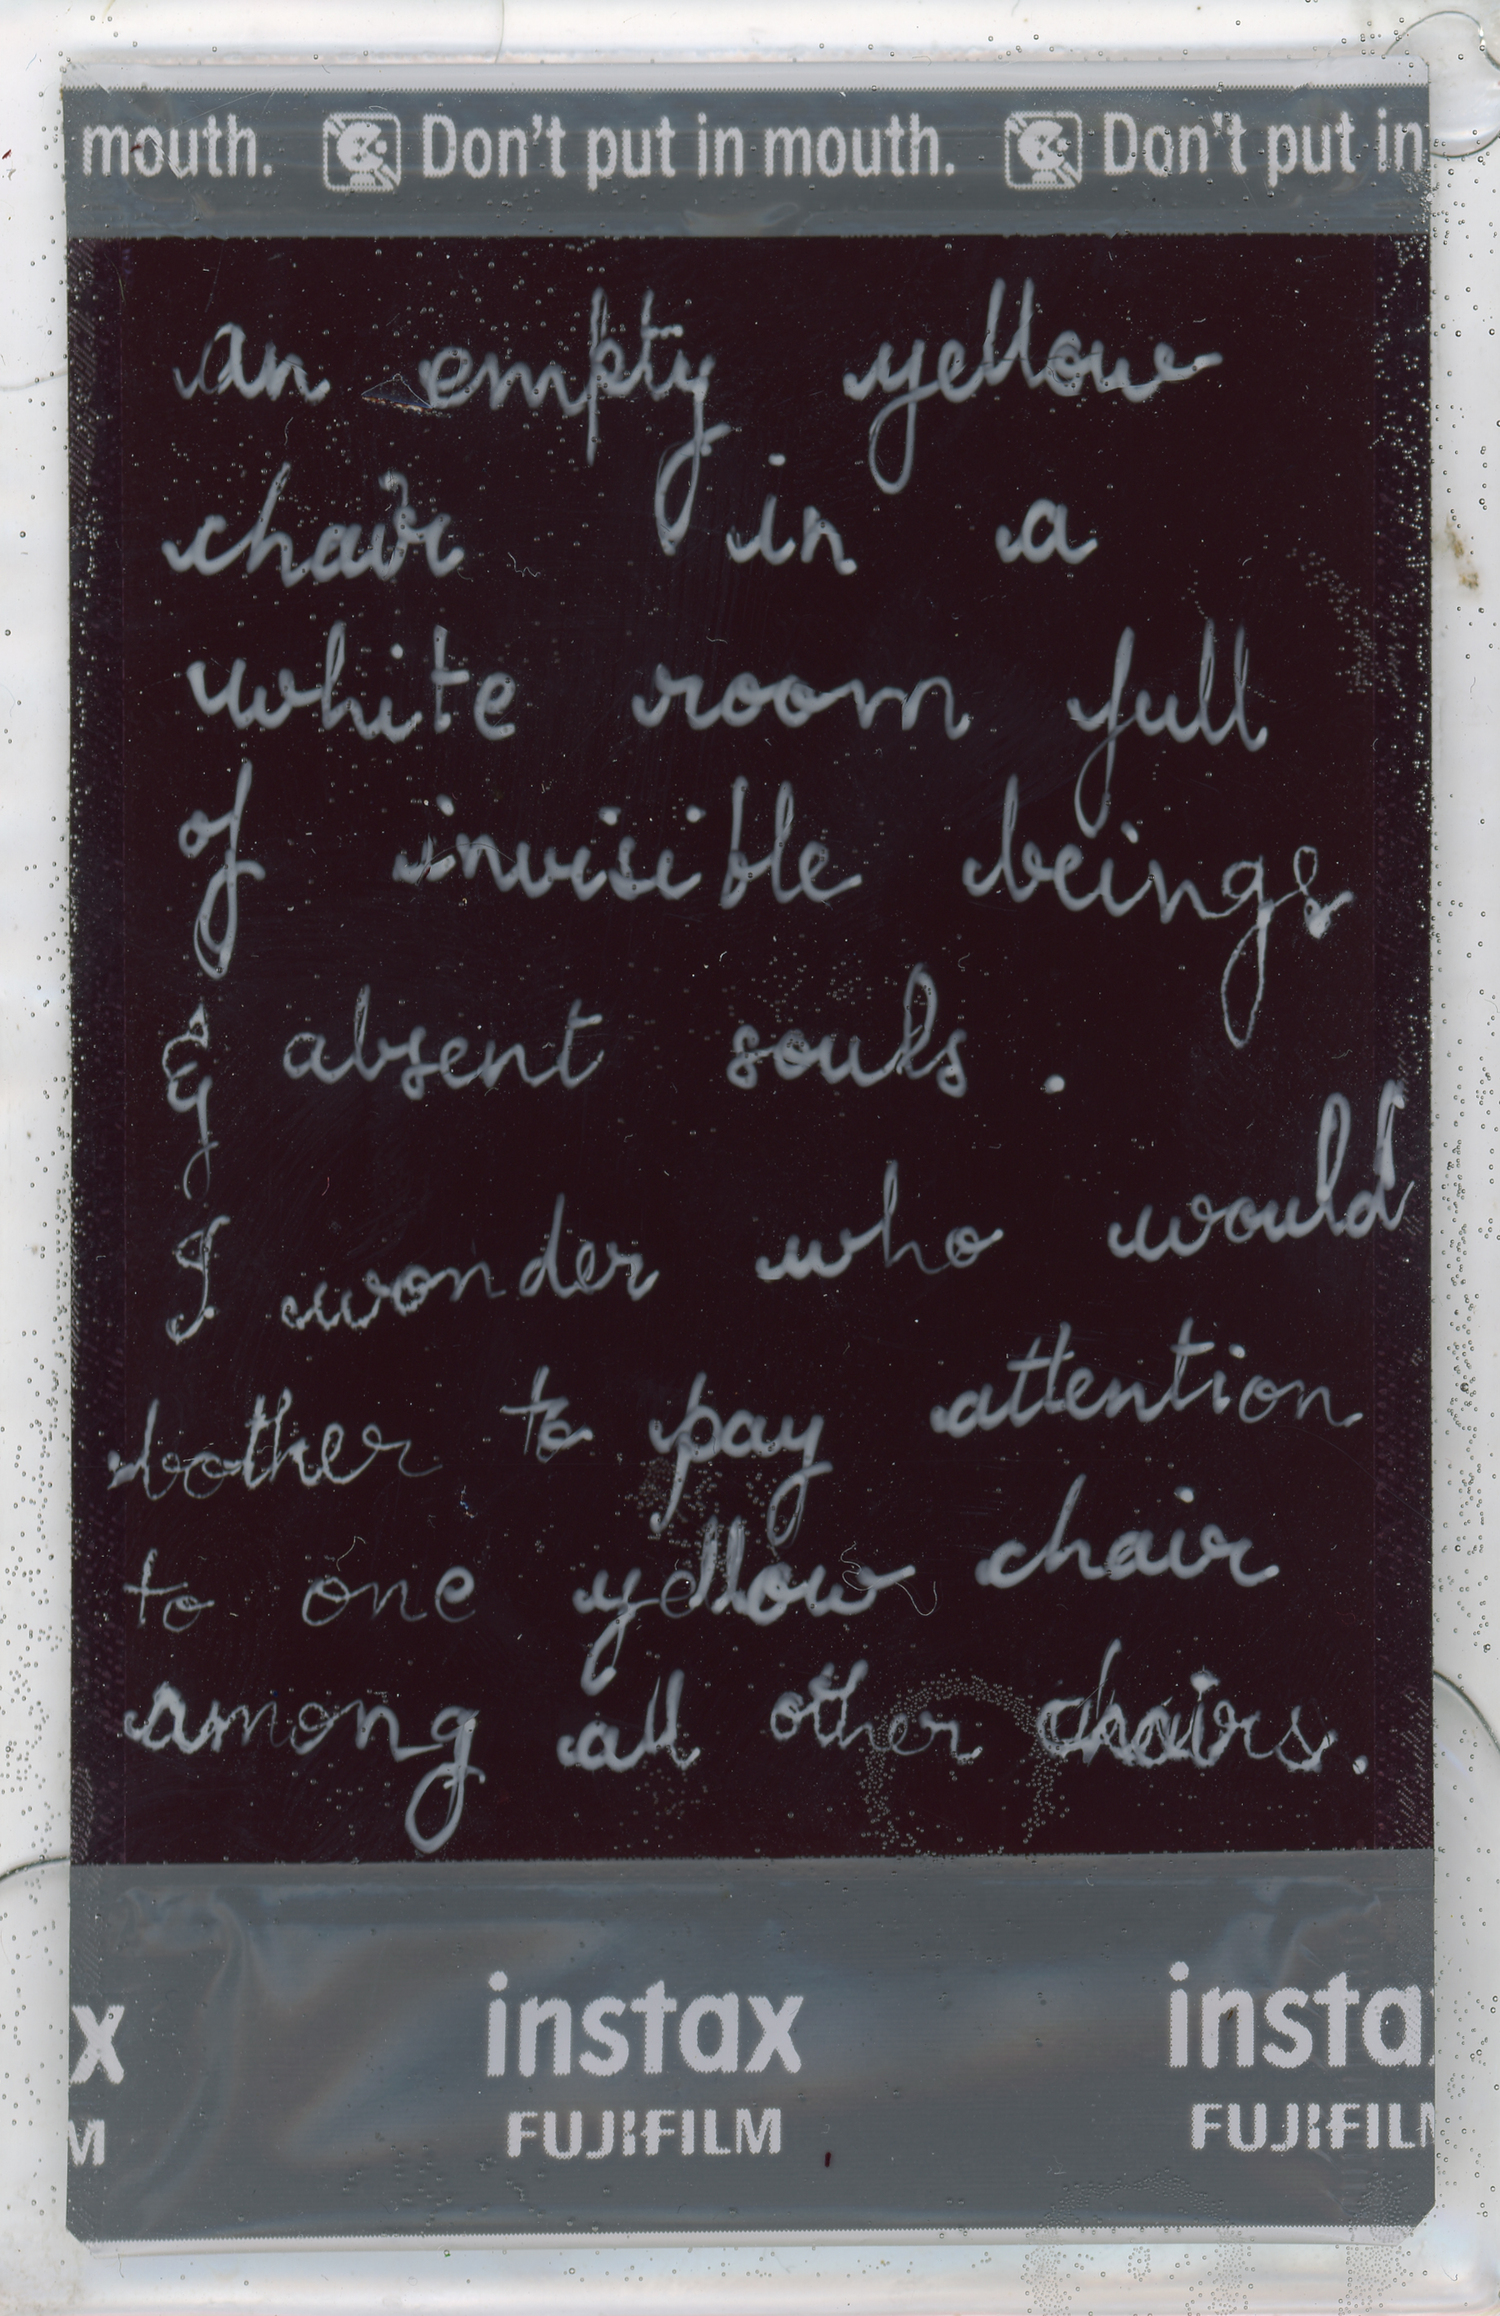 mouth. Don't put in mouth. Don't put in
an empty yellow
chair in a
white room full
of invisible beings
& absent souls.
I wonder who would
bother to pay attention
to one yellow chair
among all other chairs.
x instax insta
M FUJIFILM FUJIFILM